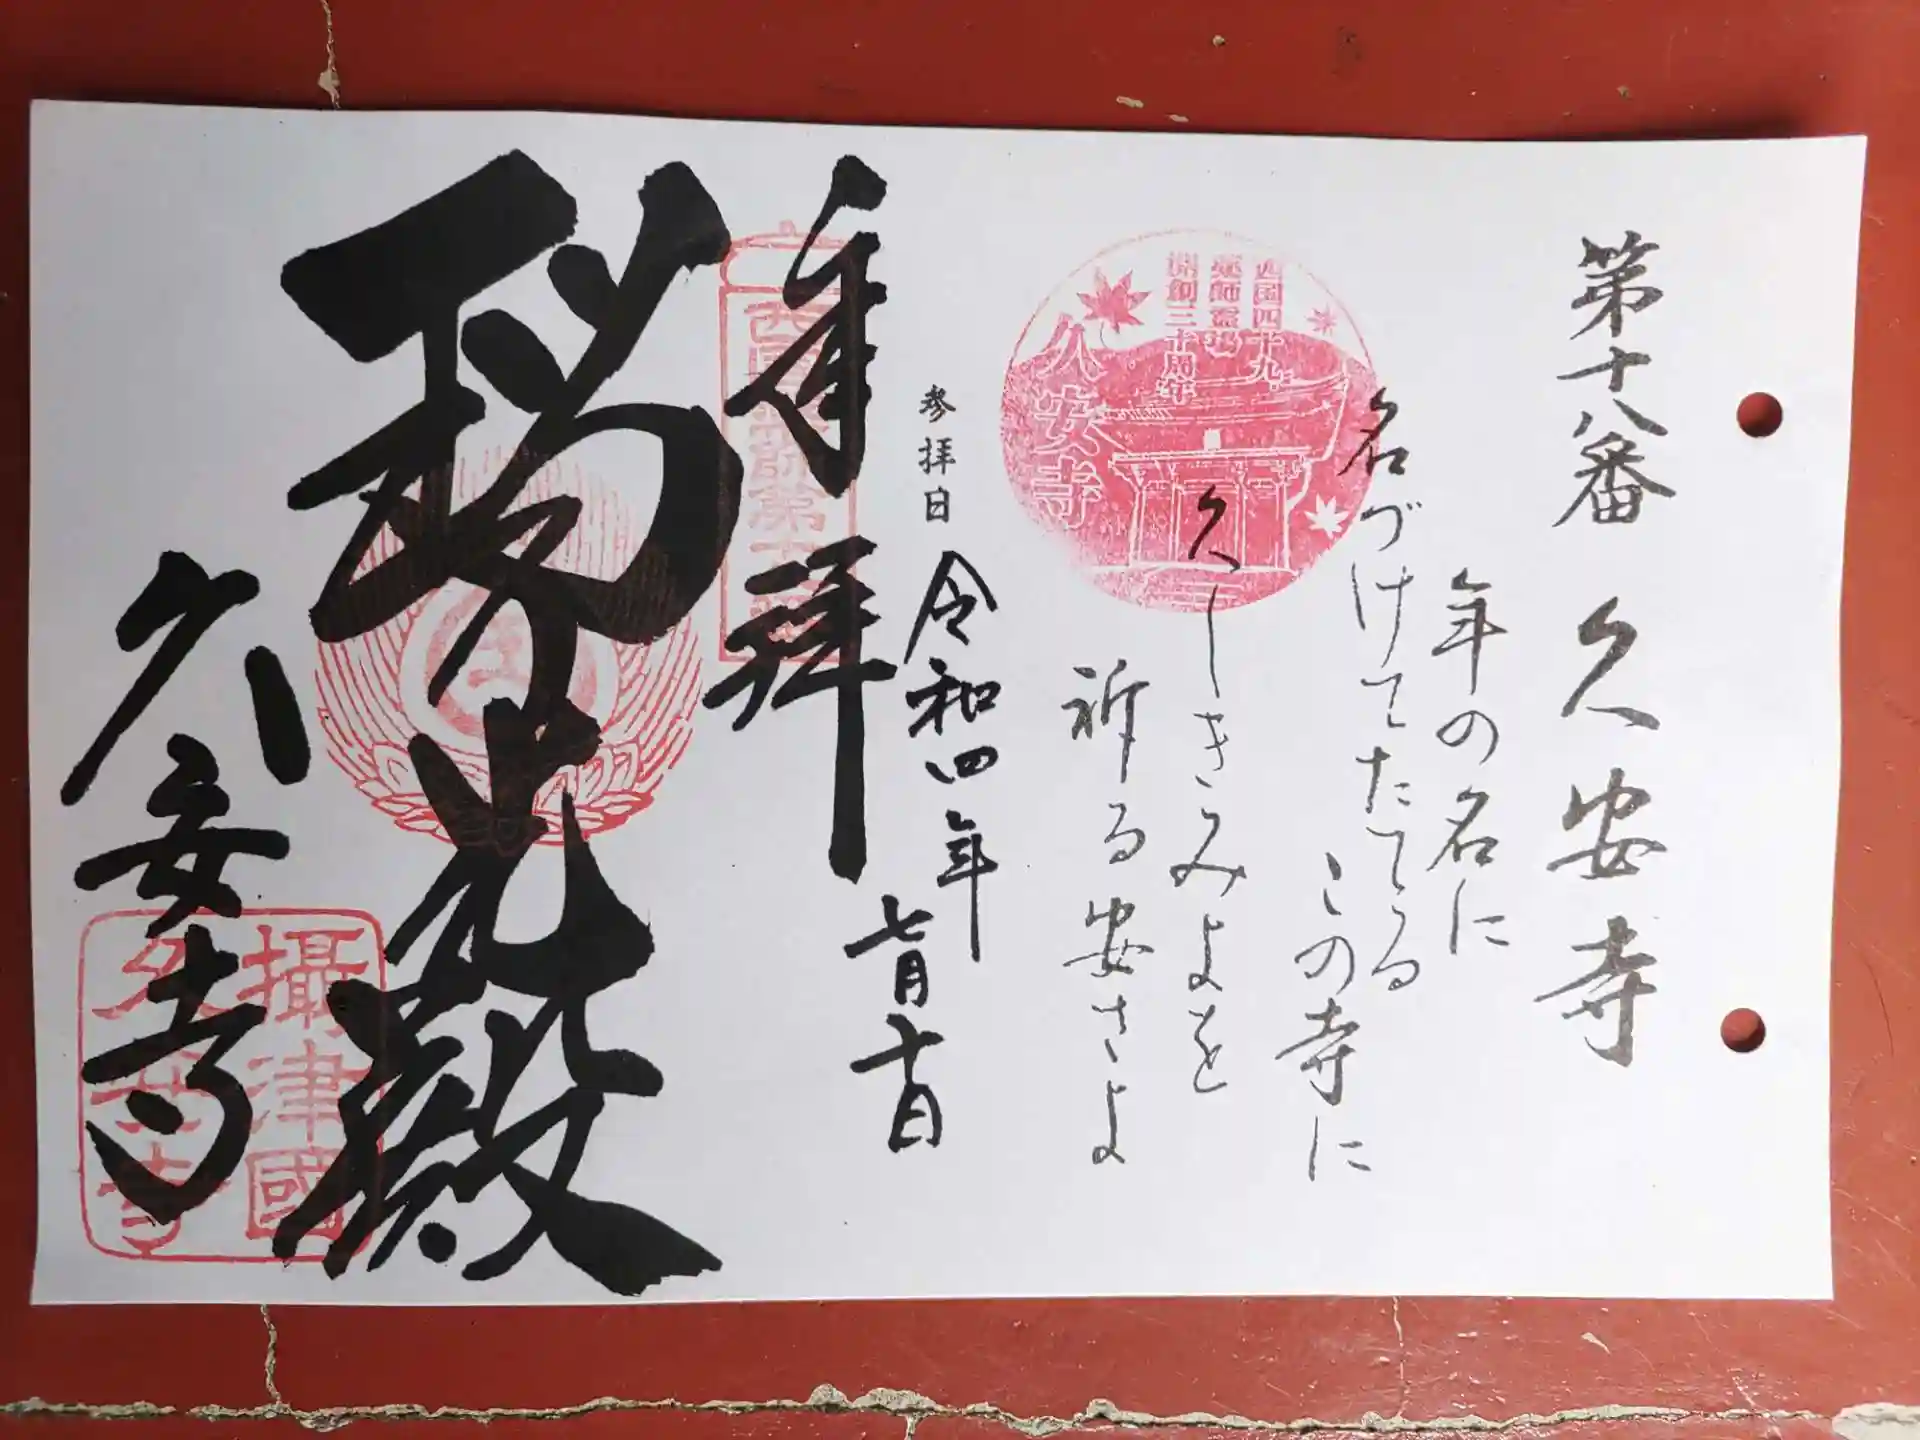 第十八番 久安寺
年の名に
名づけてたてる
この寺に
久しきみよを
祈る安さよ
西国四十九
薬師霊場
開創三十周年
久安寺
参拝日 令和四年
七月十日
奉拝
瑠光殿
久安寺
攝津國
久安寺